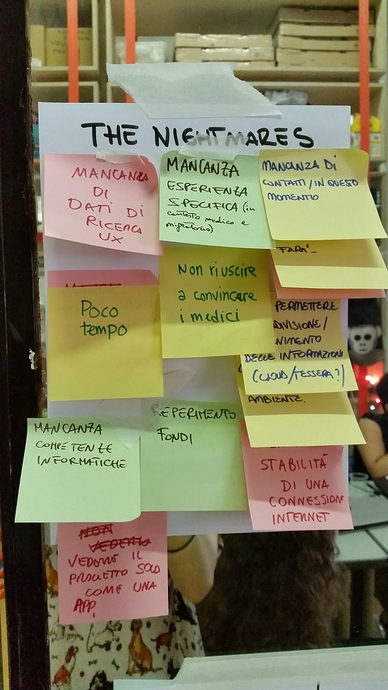 THE NIGHTMARES
MANCANZA
DI
DATI DI
RICERCA
UX
MANCANZA
ESPERIENZA
SPECIFICA (in
contesto medico e
migratorio)
MANCANZA DI
CONTATTI / IN QUESO
MOMENTO
FARA'
Poco
tempo
Non riuscire
a convincere
i medici
PERMETTERE
DIVISIONE /
NIMENTO
DELLE INFORMAZIONI
(CLOUD / TESSERA?)
AMBIENTE.
MANCANZA
COMPETENZE
INFORMATICHE
REPERIMENTO
FONDI
STABILITÀ
DI UNA
CONNESSIONE
INTERNET
NON
VEDERLO
VEDERE IL
PROGETTO SOLO
COME UNA
APP